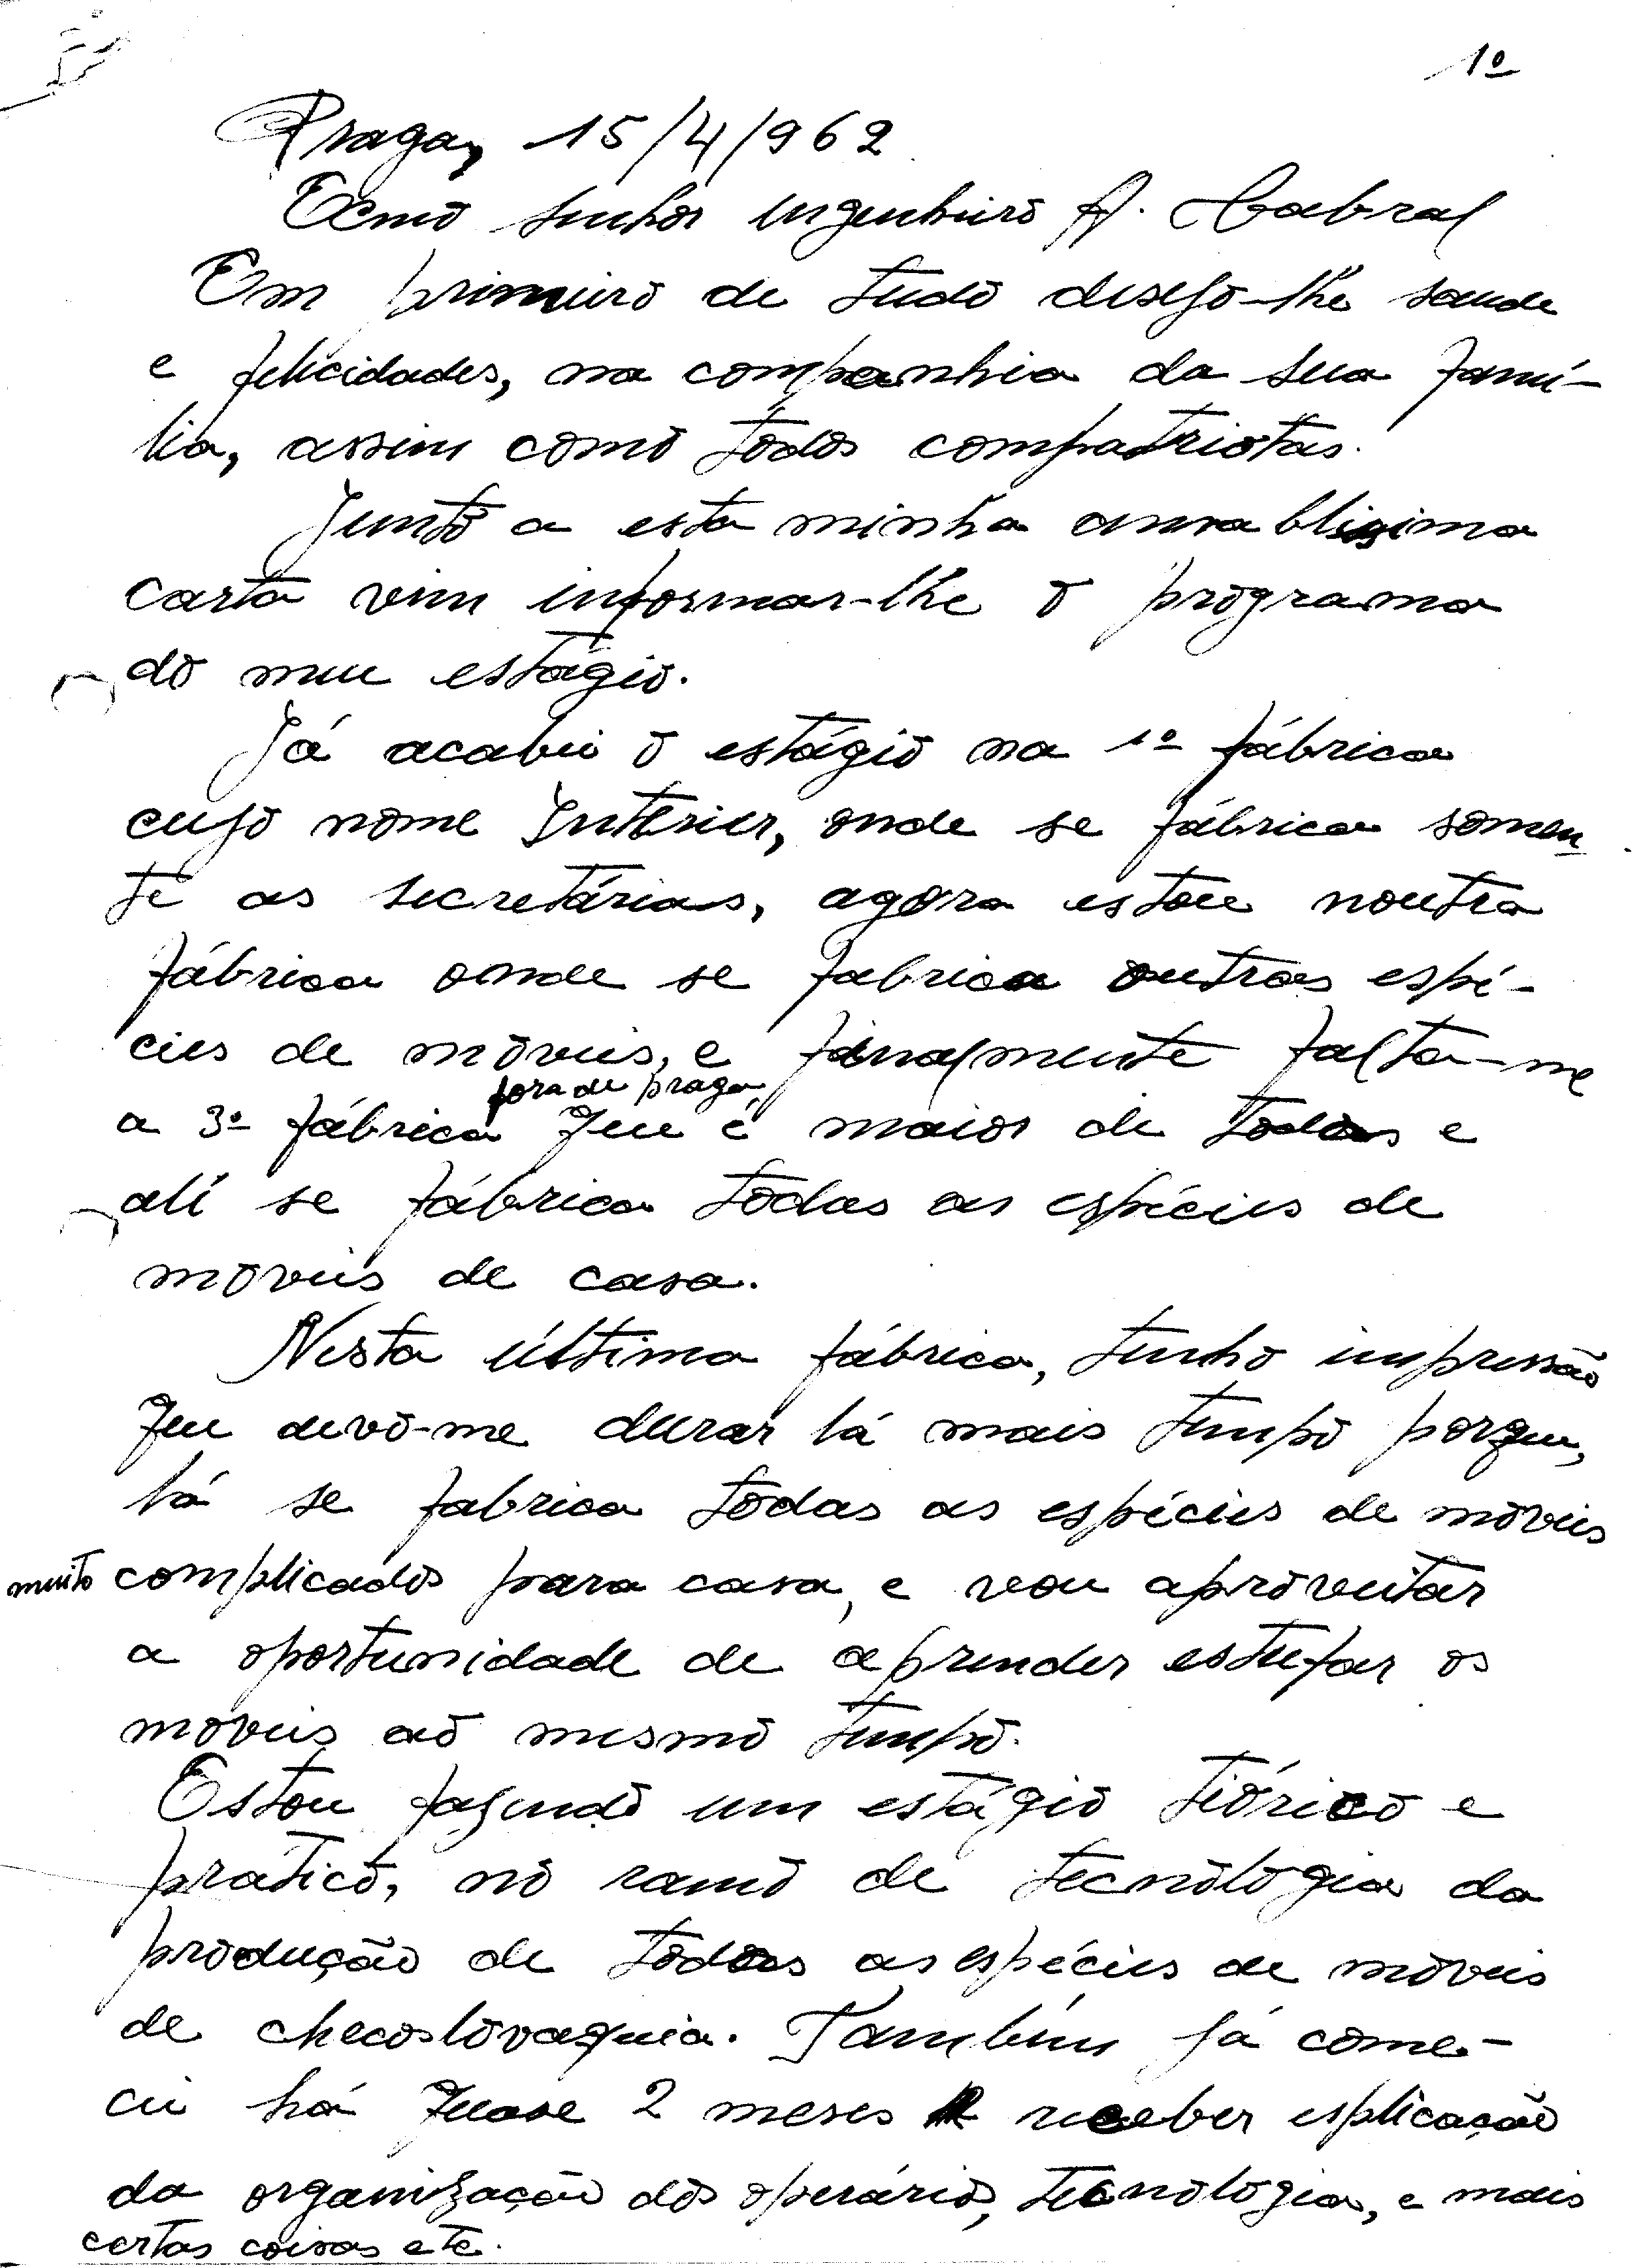 1º
Praga, 15/4/962
Ecmo senhor engenheiro A. Cabral
Em primeiro de tudo desejo-lhe saude
e felicidades, na companhia da sua famí-
lia, assim como todos compatriotas.
Junto a esta minha amablisima
carta vem informar-lhe o programa
do meu estágio.
Já acabei o estágio na 1º fábrica
cujo nome Interier, onde se fábrica somen
te as secretárias, agora estou noutra
fábrica onde se fabrica outras espé-
cies de moveis, e finalmente falta-me
fora de praga,
a 3º fábrica que é maior de todas e
alí se fábrica todas as espécies de
moveis de casa.
Nesta última fábrica, tenho impressão
que devo-me durar lá mais tempo porque,
lá se fabrica todas as espécies de moveis
muito complicados para casa, e vou aproveitar
a oportunidade de aprender estufar os
moveis ao mesmo tempo.
Estou fazendo um estágio teórico e
prático, no ramo de tecnologia da
produção de todas as espécies de moveis
de checoslovaquia. Também já come-
cei há quase 2 meses receber esplicação
da organização dos operários, tecnologia, e mais
certas coisas etc.